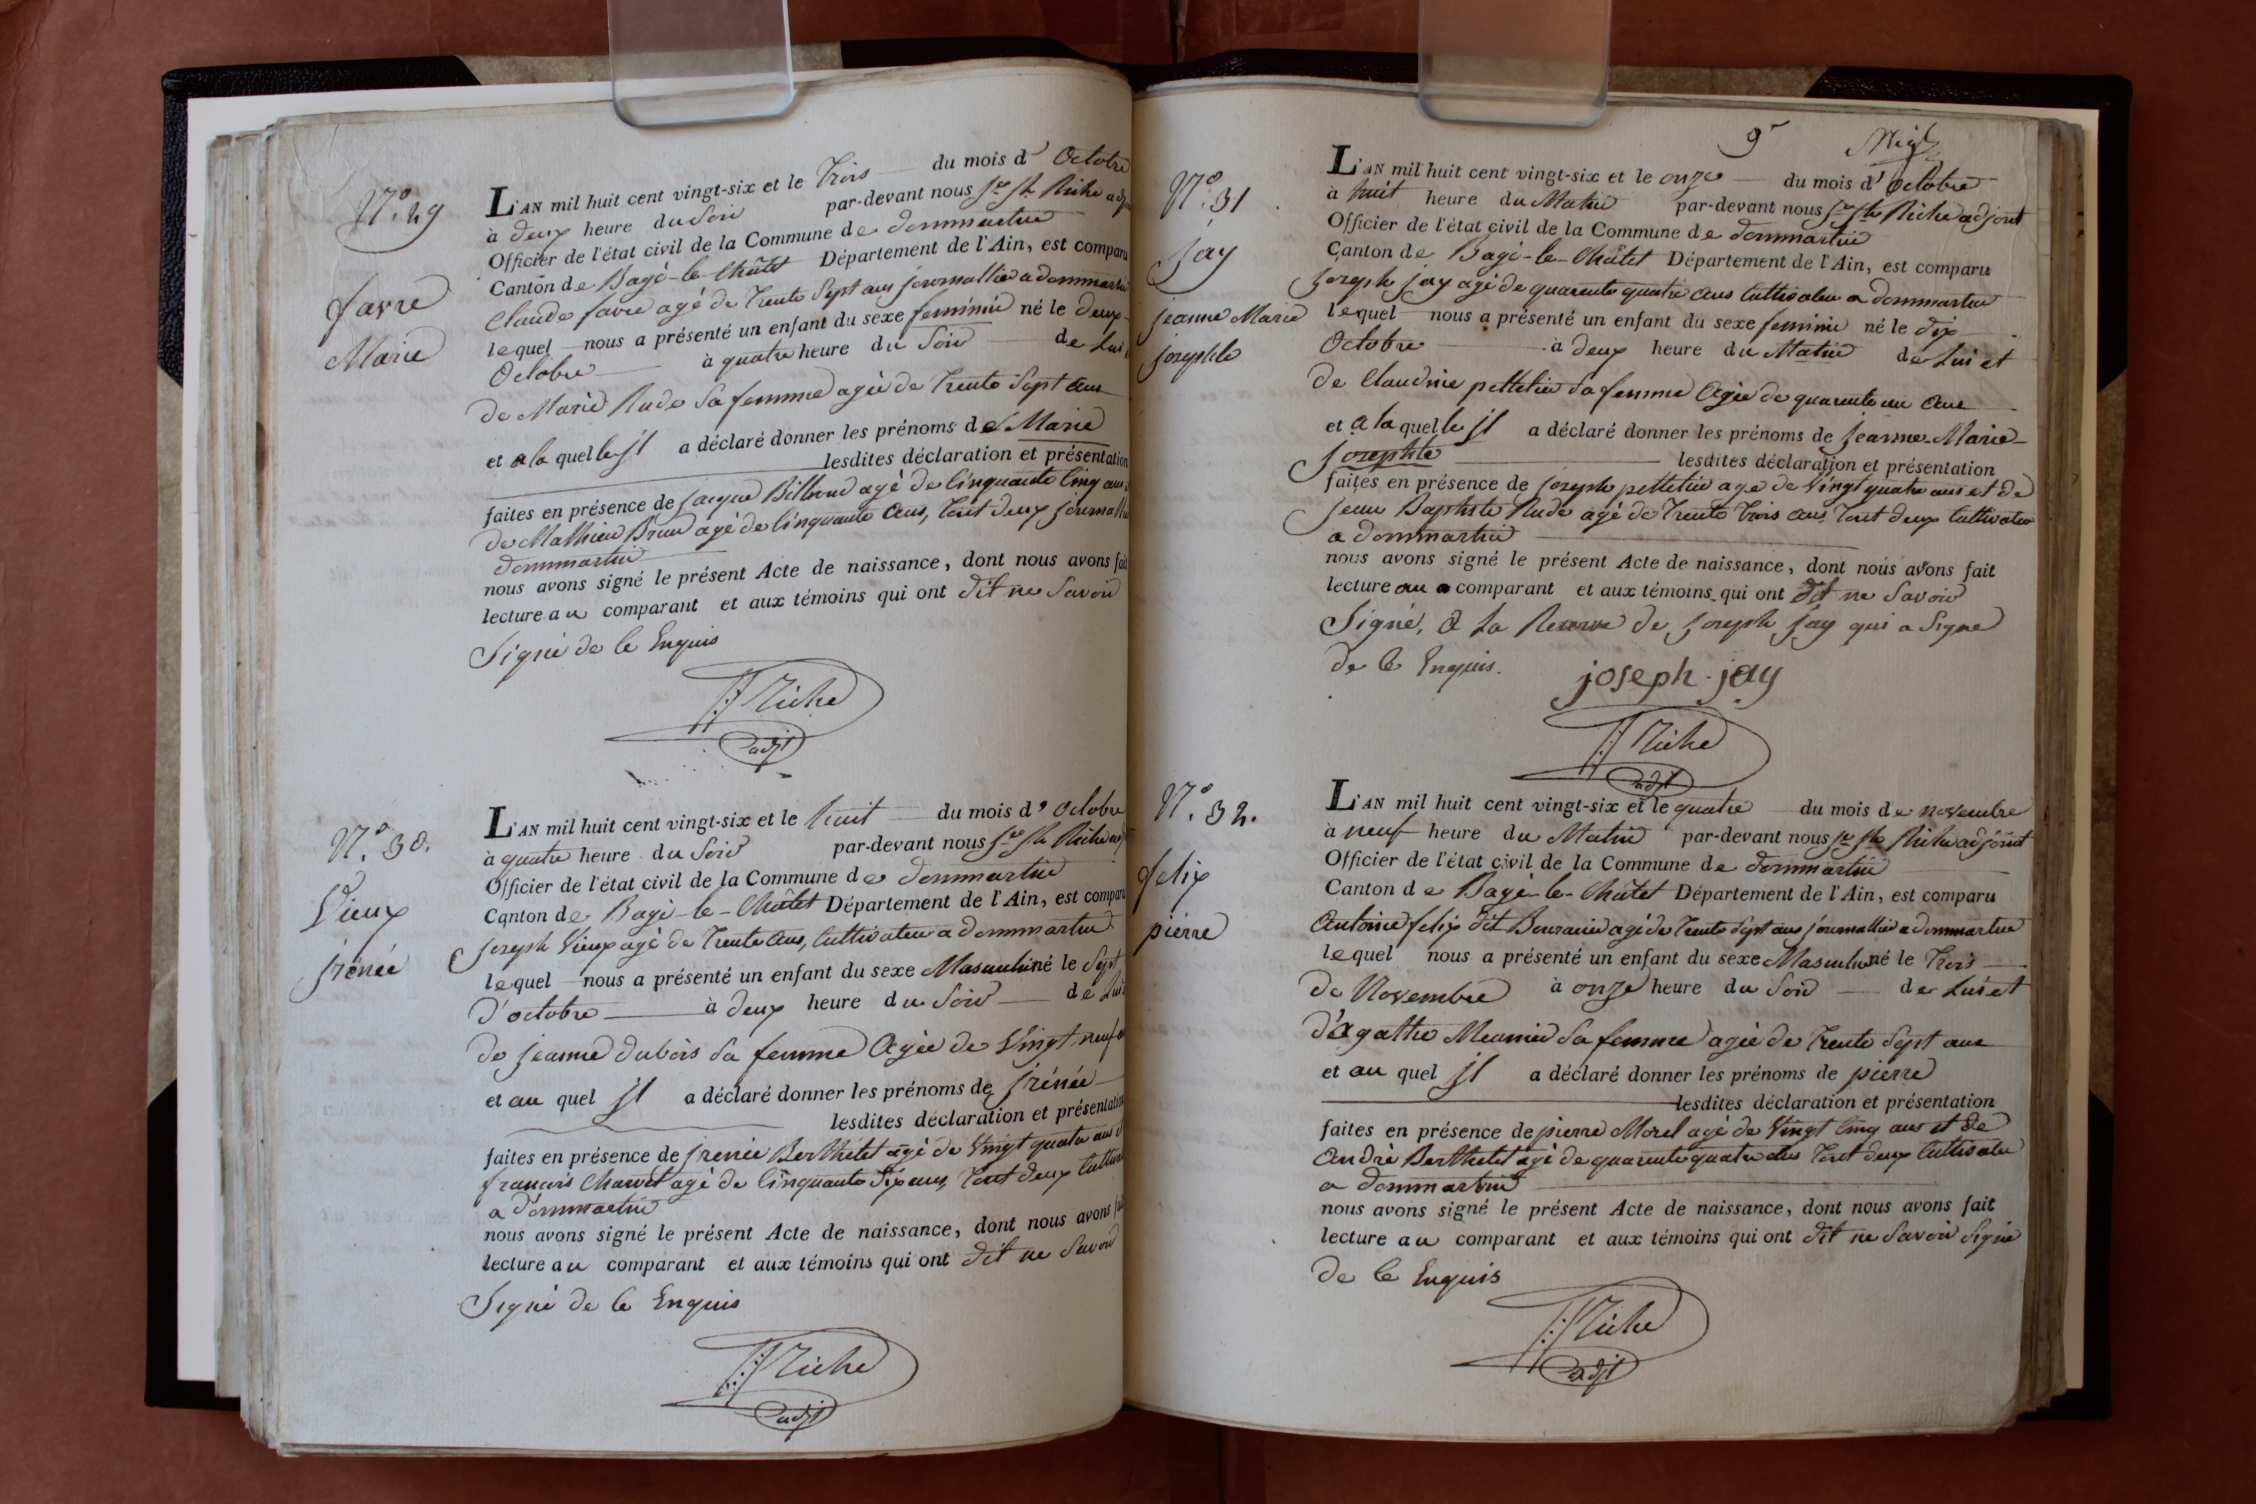 N.º 29
favre
Marie
L'AN mil huit cent vingt-six et le Trois du mois d' Octobre
à deux heure du Soir par-devant nous Riche
Officier de l'état civil de la Commune de dommartin
Canton de Bagé-le-Châtel Département de l'Ain, est comparu
Claude favre agé de Trente Sept ans journallier a dommartin
lequel nous a présenté un enfant du sexe feminin né le deux
Octobre à quatre heure du Soir de Lui
de Marie Rude Sa femme agée de Trente Sept ans
et a la quelle il a déclaré donner les prénoms de Marie
lesdites déclaration et présentation
faites en présence de jacque agé de Cinquante Cinq ans
de Mathieu Brun agé de Cinquante ans, Tout deux journallier
dommartin
nous avons signé le présent Acte de naissance, dont nous avons fait
lecture au comparant et aux témoins qui ont dit ne Savoir
Signé de Ce Enquis
Riche
adjt
N.º 30.
Vieux
jrénée
L'AN mil huit cent vingt-six et le huit du mois d' Octobre
à quatre heure du Soir par-devant nous Riche
Officier de l'état civil de la Commune de dommartin
Canton de Bagé-le-Châtel Département de l'Ain, est comparu
joseph Vieux agé de Trente ans, Cultivateur a dommartin
lequel nous a présenté un enfant du sexe Masculin né le Sept
d'octobre à deux heure du Soir de Lui
de jeanne dubois Sa femme Agée de Vingt neuf
et au quel il a déclaré donner les prénoms de jrénée
lesdites déclaration et présentation
faites en présence de jrenée Berthelet agé de Vingt quatre ans
francois Charvet agé de Cinquante Six ans, Tout deux
a dommartin
nous avons signé le présent Acte de naissance, dont nous avons fait
lecture au comparant et aux témoins qui ont dit ne Savoir
Signé de Ce Enquis
Riche
adjt
9
N.º 31
jay
jeanne Marie
josephte
L'AN mil huit cent vingt-six et le onze du mois d' Octobre
à huit heure du Matin par-devant nous Riche adjoint
Officier de l'état civil de la Commune de dommartin
Canton de Bagé-le-Châtel Département de l'Ain, est comparu
joseph jay agé de quarente quatre ans Cultivateur a dommartin
lequel nous a présenté un enfant du sexe feminin né le dix
Octobre à deux heure du Matin de Lui et
de Claudine pelletier Sa femme Agée de quarente un ans
et a la quelle il a déclaré donner les prénoms de jeanne Marie
josephte lesdites déclaration et présentation
faites en présence de joseph pelletier age de Vingt quatre ans et de
jean Baptiste Rude agé de Trente Trois ans, Tout deux Cultivateur
a dommartin
nous avons signé le présent Acte de naissance, dont nous avons fait
lecture au comparant et aux témoins qui ont dit ne Savoir
Signé, a La Reserve de joseph jay qui a Signe
de Ce Enquis.
joseph jay
Riche
adjt
N.º 32.
felix
pierre
L'AN mil huit cent vingt-six et le quatre du mois de novembre
à neuf heure du Matin par-devant nous Riche adjoint
Officier de l'état civil de la Commune de dommartin
Canton de Bagé-le-Châtel Département de l'Ain, est comparu
Antoine felix dit agé de Trente Sept ans journallier a dommartin
lequel nous a présenté un enfant du sexe Masculin né le Trois
de Novembre à onze heure du Soir de Lui et
d'agathe Meunier Sa femme agée de Trente Sept ans
et au quel il a déclaré donner les prénoms de pierre
lesdites déclaration et présentation
faites en présence de pierre Morel agé de Vingt Cinq ans et de
André Berthelet agé de quarente quatre ans Tout deux Cultivateur
a dommartin
nous avons signé le présent Acte de naissance, dont nous avons fait
lecture au comparant et aux témoins qui ont dit ne Savoir Signé
de Ce Enquis
Riche
adjt